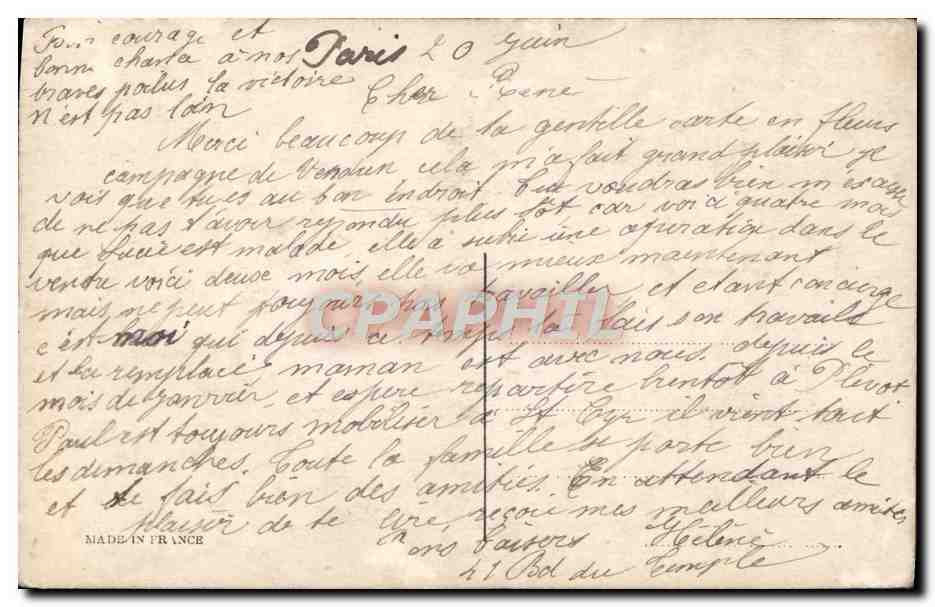 Bon courage et
bonne chance à nos
braves poilus la victoire
n'est pas loin
Paris 20 Juin
Cher René
Merci beaucoup de ta gentille carte en fleurs
campagne de Verdun cela m'a fait grand plaisir je
vois que tu es au bon endroit. Tu voudras bien m'
de ne pas t'avoir repondu plus tôt car voici quatre mois
que est malade, elle à subie une operation dans le
ventre voici deux mois, elle va mieux maintenant
mais ne peut toujours pas travailler et etant concierge
c'est moi qui depuis ce temps la fais son travail
et la remplace, maman est avec nous depuis le
mois de Janvier et espere repartire bientot à Plévot
Paul est toujours mobiliser à St Cyr il vient tout
les dimanches. Toute la famille se porte bien
et te fais bien des amitiés. En attendant le
plaisir de te lire, reçoie mes meilleurs amities
Bons baisers Hélène
41 Bd du Temple
MADE IN FRANCE
CPAPHIL